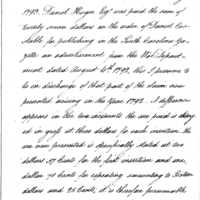 1799. Daniel Huger Esqr was paid the sum of
twenty seven dollars on the order of Daniel Con-
stable for publishing in the South Carolina Ga-
zette an advertisement from the War Depart-
ment dated August 6th 1799, this I presume to
be in discharge of that part of the claim now
presented arising in the year 1799. A difference
appears in the two accounts the one paid is charg-
ed in gross at three dollars for each insertion the
one now presented is specifically stated at two
dollars 37 Cents for the first insertion and one
dollar 74 Cents for repeating amounting to sixteen
dollars and 35 Cents, it is therefore presumable